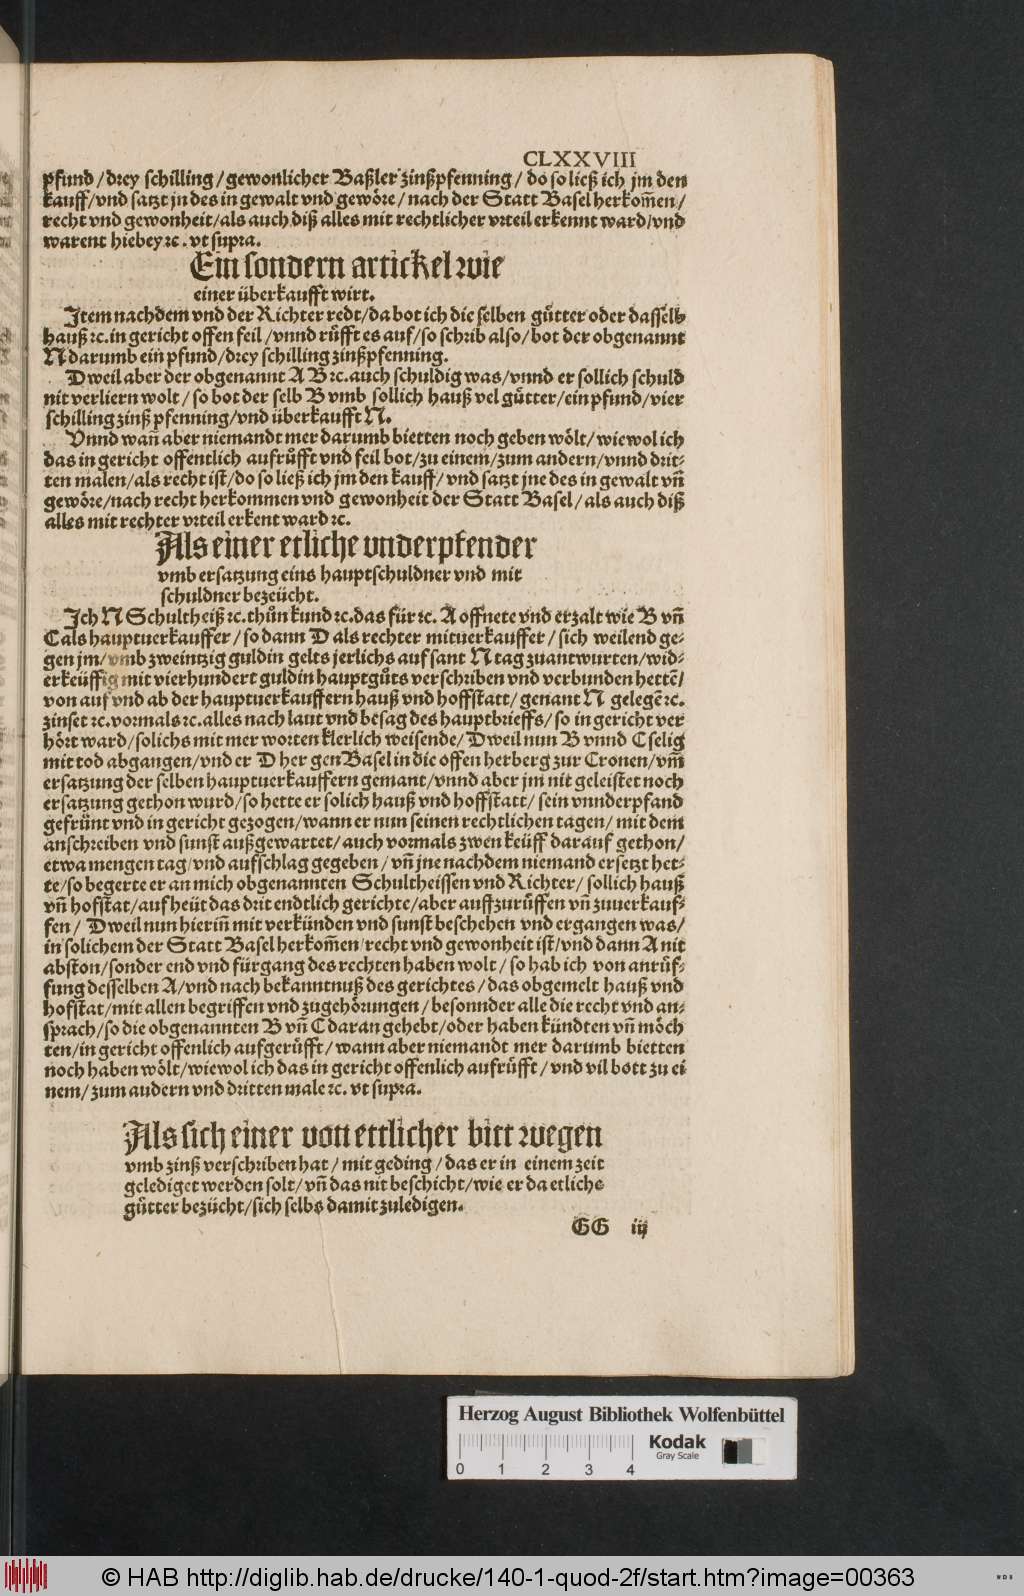 CLXXVIII
pfund/drey schilling/gewonlicher Baßler zinßpfenning/do so ließ ich jm den
kauff/vnd satzt jn des in gewalt vnd gewöre/nach der Statt Basel herkom̃en/
recht vnd gewonheit/als auch diß alles mit rechtlicher vrteil erkennt ward/vnd
warent hiebey ꝛc. vt supra.
Ein sondern artickel wie
einer überkaufft wirt.
Item nachdem vnd der Richter redt/da bot ich die selben gu̎tter oder dasselb
hauß ꝛc. in gericht offen feil/vnnd ru̎fft es auf/so schrib also/bot der obgenannt
N darumb ein pfund/drey schilling zinßpfenning.
Dweil aber der obgenannt A B ꝛc. auch schuldig was/vnnd er sollich schuld
nit verliern wolt/so bot der selb B vmb sollich hauß vel gu̎tter/ein pfund/vier
schilling zinß pfenning/vnd überkaufft N.
Vnnd wañ aber niemandt mer darumb bietten noch geben wölt/wiewol ich
das in gericht offentlich aufru̎fft vnd feil bot/zu einem/zum andern/vnnd drit-
ten malen/als recht ist/do so ließ ich jm den kauff/vnd satzt jne des in gewalt vñ
gewöre/nach recht herkommen vnd gewonheit der Statt Basel/als auch diß
alles mit rechter vrteil erkent ward ꝛc.
Als einer etliche vnderpfender
vmb ersatzung eins hauptschuldner vnd mit
schuldner bezeücht.
Ich N Schultheiß ꝛc. thůn kund ꝛc. das für ꝛc. A offnete vnd erzalt wie B vñ
C als hauptuerkauffer/so dann D als rechter mituerkauffer/sich weilend ge-
gen jm/vmb zweintzig guldin gelts jerlichs auf sant N tag zuantwurten/wid-
erkeüffig mit vierhundert guldin hauptgůts verschriben vnd verbunden hettẽ/
von auf vnd ab der hauptuerkauffern hauß vnd hoffstatt/genant N gelegẽ ꝛc.
zinset ꝛc. vormals ꝛc. alles nach laut vnd besag des hauptbrieffs/so in gericht ver
hört ward/solichs mit mer worten klerlich weisende/Dweil nun B vnnd C selig
mit tod abgangen/vnd er D her gen Basel in die offen herberg zur Cronen/vm̃
ersatzung der selben hauptuerkauffern gemant/vnnd aber jm nit geleistet noch
ersatzung gethon wurd/so hette er solich hauß vnd hoffstatt/sein vnnderpfand
gefrünt vnd in gericht gezogen/wann er nun seinen rechtlichen tagen/mit dem
anschreiben vnd sunst außgewartet/auch vormals zwen keüff darauf gethon/
etwa mengen tag/vnd aufschlag gegeben/vñ jne nachdem niemand ersetzt het-
te/so begerte er an mich obgenannten Schultheissen vnd Richter/sollich hauß
vñ hofstat/auf heüt das drit endtlich gerichte/aber auffzurüffen vñ zuuerkauf-
fen/Dweil nun hieriñ mit verkünden vnd sunst beschehen vnd ergangen was/
in solichem der Statt Basel herkom̃en/recht vnd gewonheit ist/vnd dann A nit
abston/sonder end vnd fürgang des rechten haben wolt/so hab ich von anru̎f-
fung desselben A/vnd nach bekanntnuß des gerichtes/das obgemelt hauß vnd
hofstat/mit allen begriffen vnd zugehörungen/besonnder alle die recht vnd an-
sprach/so die obgenannten B vñ C daran gehebt/oder haben kündten vñ möch
ten/in gericht offenlich aufgeru̎fft/wann aber niemandt mer darumb bietten
noch haben wölt/wiewol ich das in gericht offenlich aufru̎fft/vnd vil bott zu ei
nem/zum andern vnd dritten male ꝛc. vt supra.
Als sich einer von ettlicher bitt wegen
vmb zinß verschriben hat/mit geding/das er in einem zeit
gelediget werden solt/vñ das nit beschicht/wie er da etliche
gu̎tter bezücht/sich selbs damit zuledigen.
GG iij
Herzog August Bibliothek Wolfenbüttel
Kodak
Gray Scale
0 1 2 3 4
© HAB http://diglib.hab.de/drucke/140-1-quod-2f/start.htm?image=00363